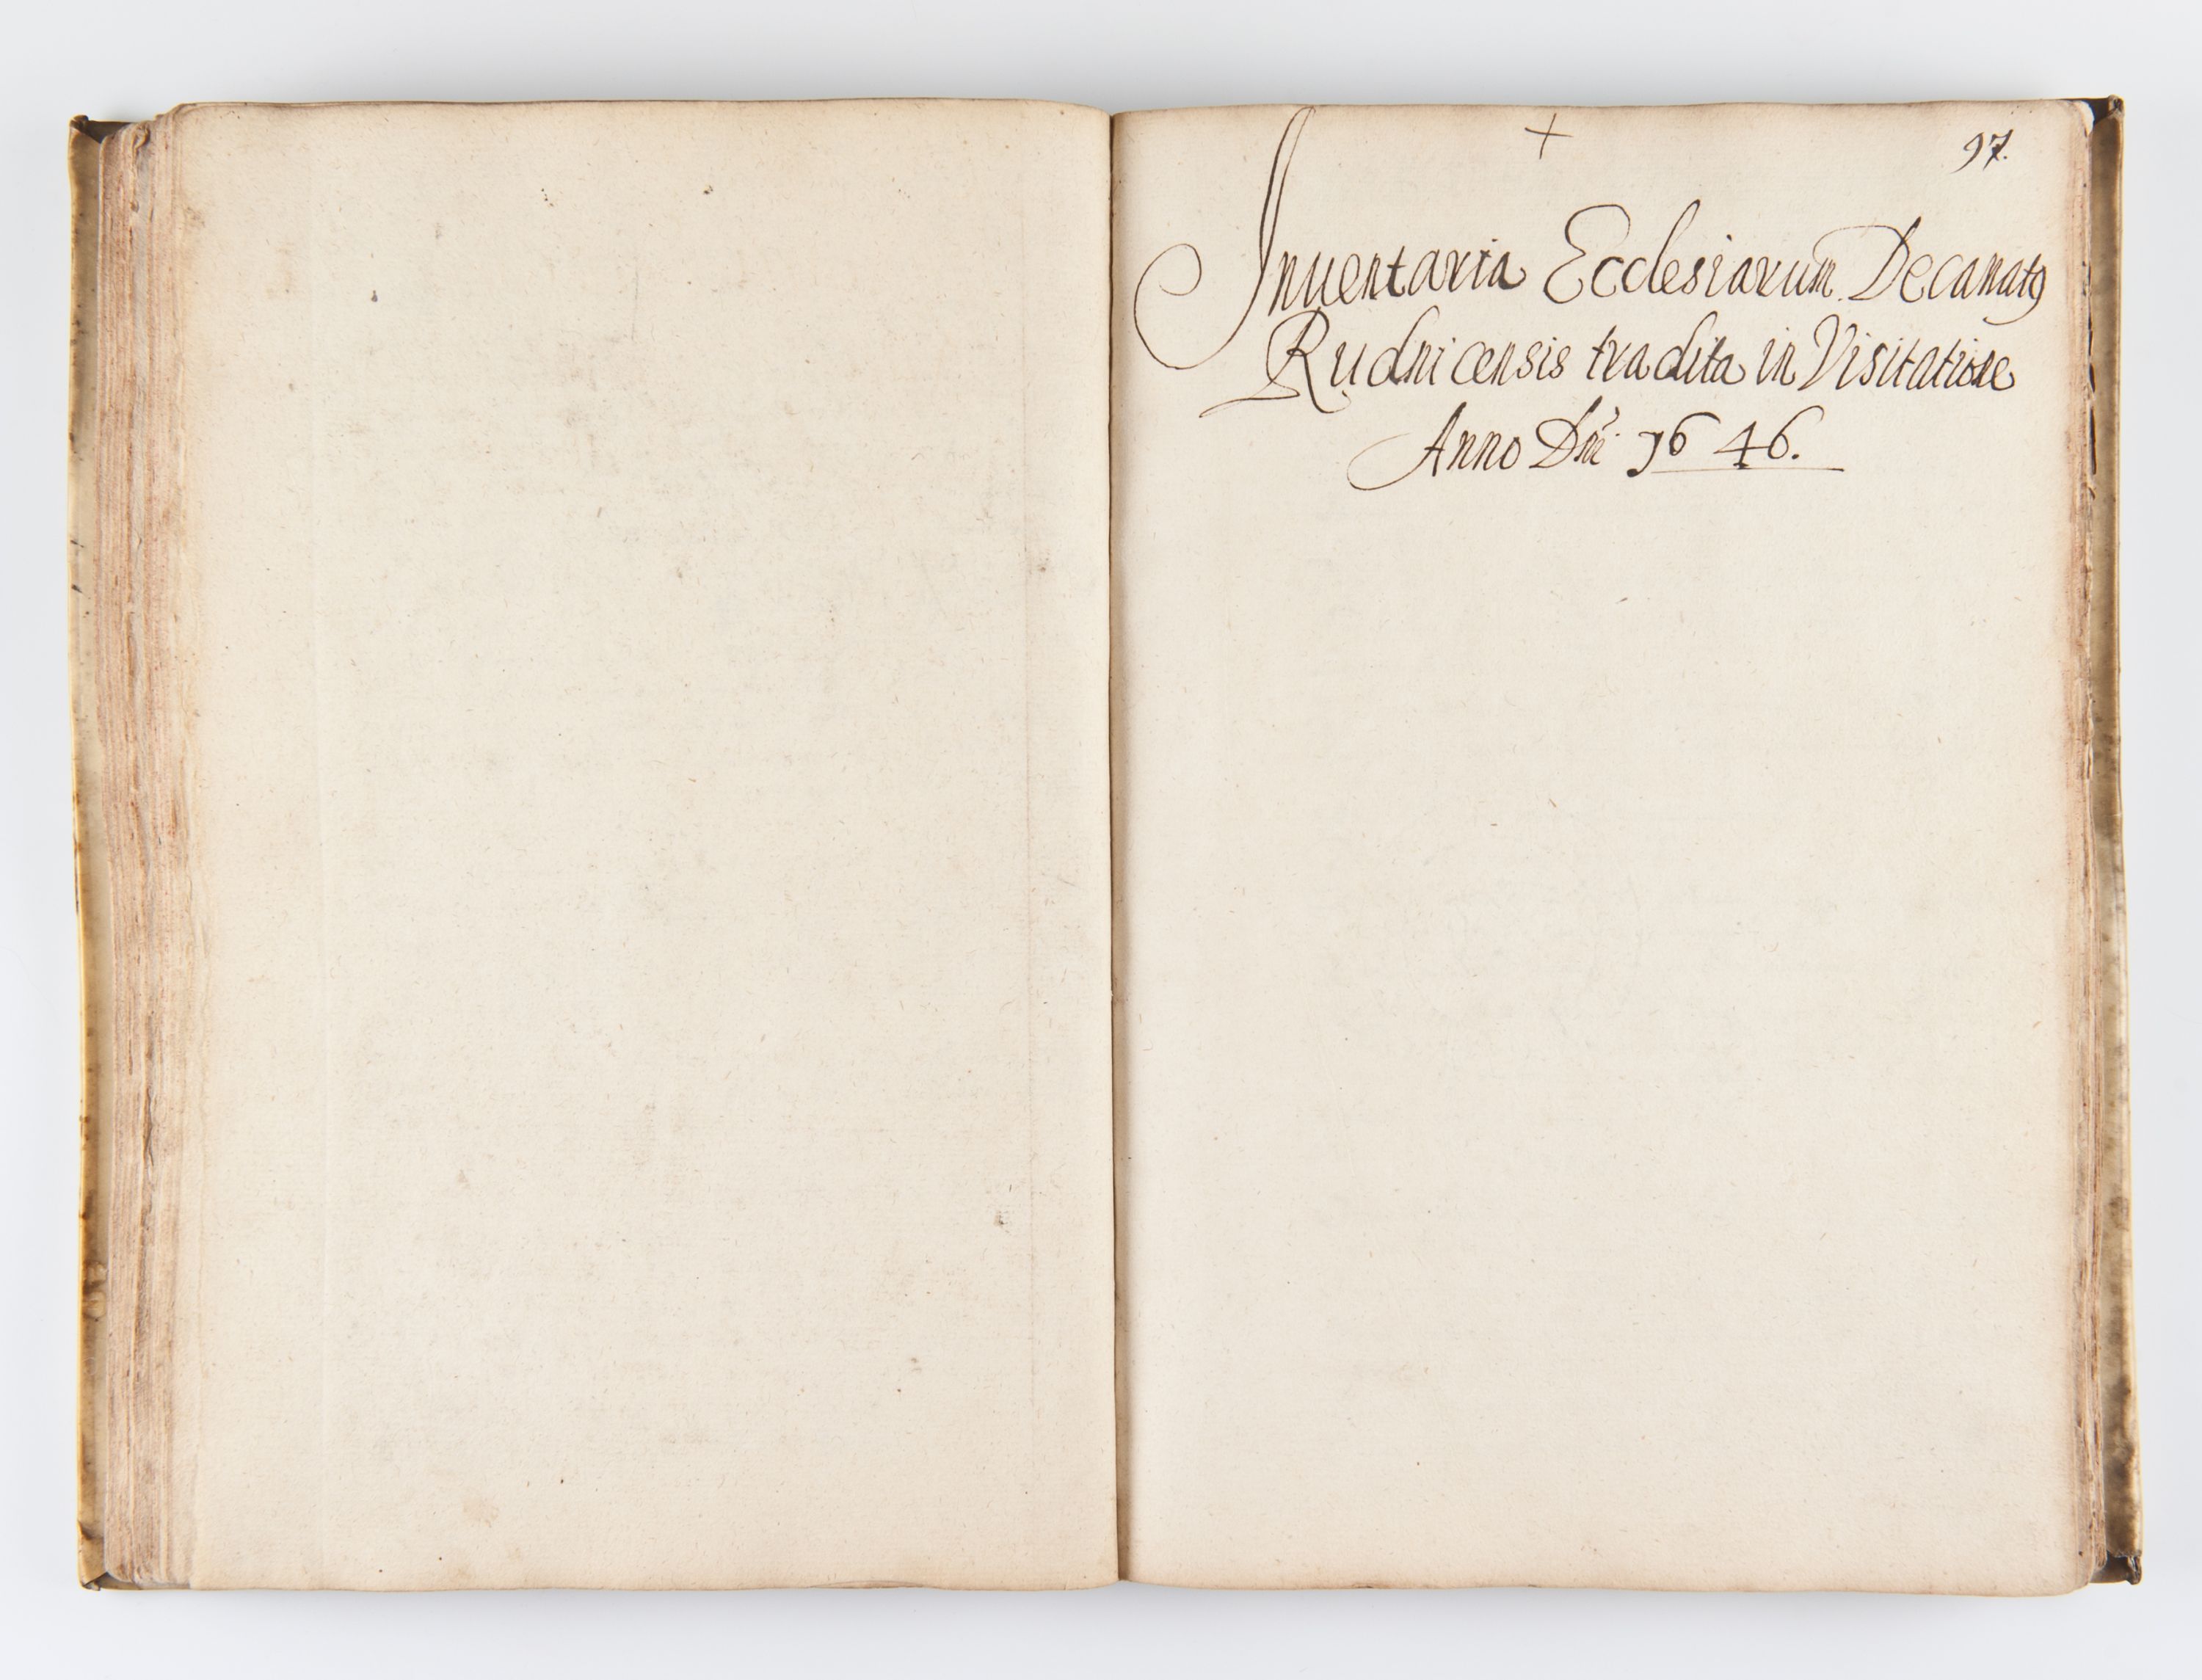 +
97.
Inuentaria Ecclesiarum Decanatꝰ
Rudnicensis tradita in Visitatione
Anno Dni̅ 1646.